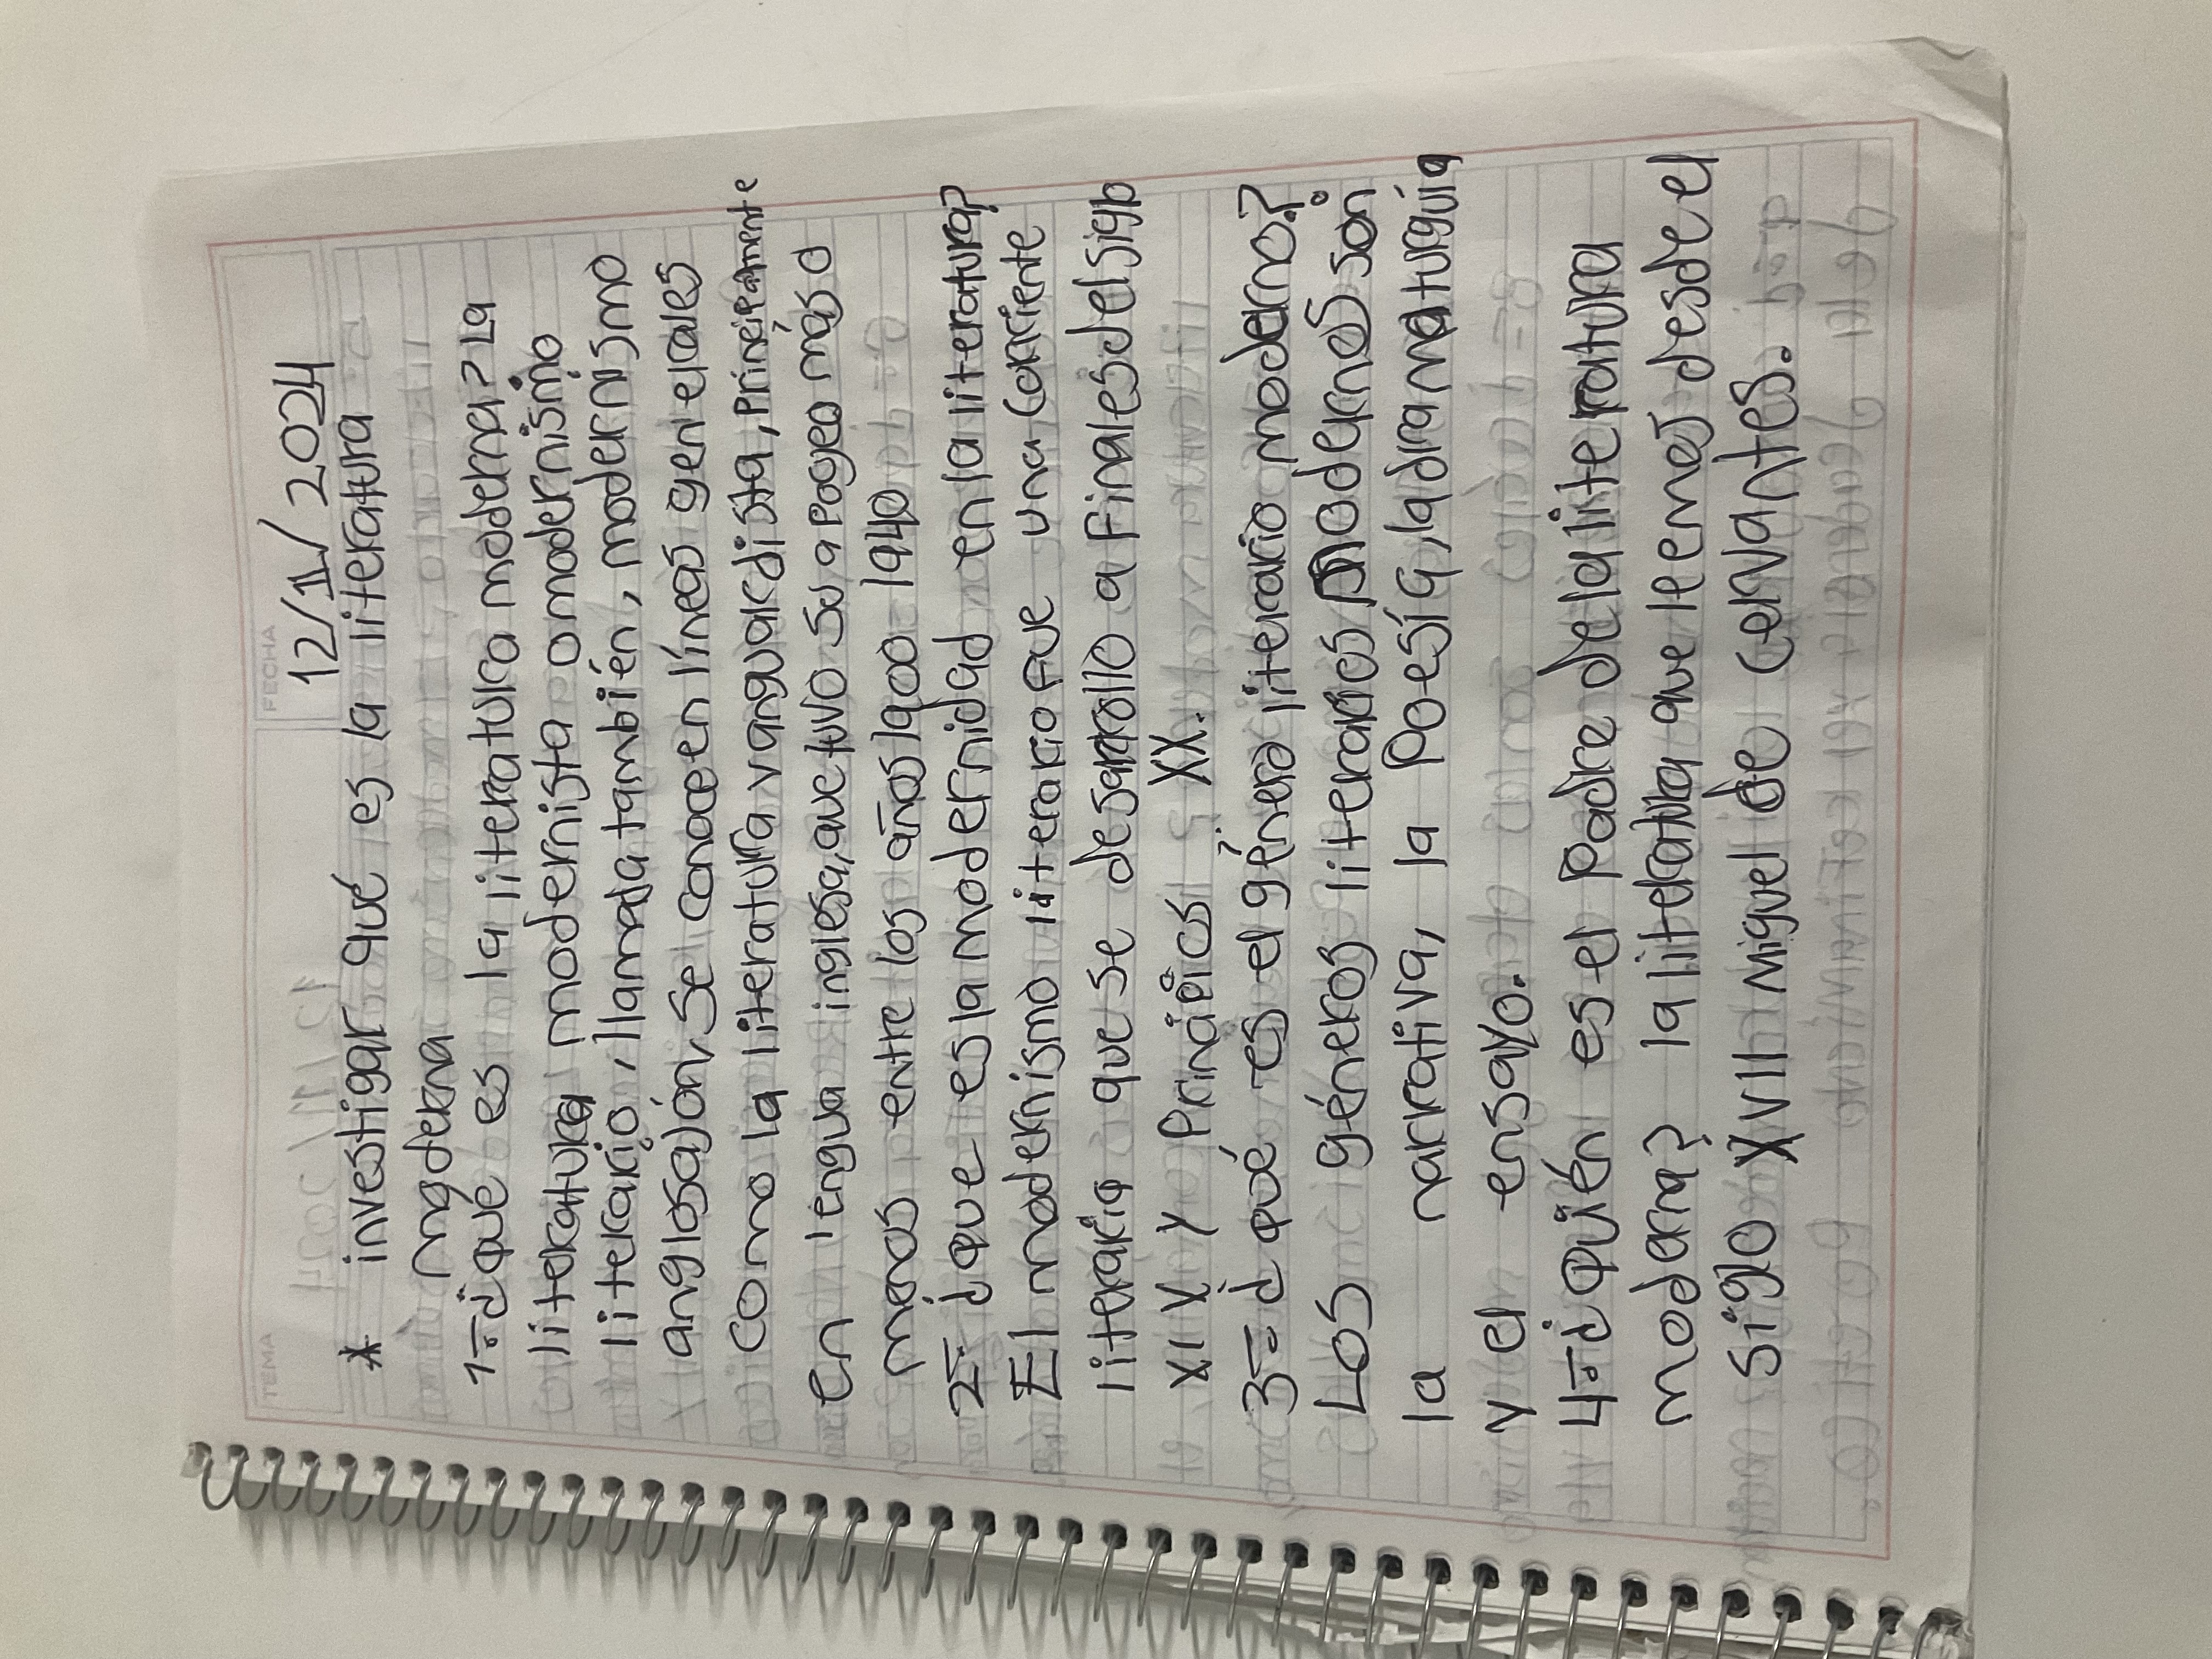 FECHA
12/11/2024
TEMA
* investigar qué es la literatura
moderna
1=¿qué es la literatura moderna? La
literatura modernista o modernismo
literario, llamada también, modernismo
anglosajón, se conoce en líneas generales
como la literatura vanguardista, principalmente
en lengua inglesa, que tuvo su apogeo más o
menos entre los años 1900 1940
2= ¿que es la modernidad en la literatura?
El modernismo literario fue una corriente
literaria que se desarrollo a finales del siglo
XIX y principios XX.
3= ¿qué es el género literario moderno?
Los géneros literarios modernos son
la narrativa, la poesía, la dramaturguia
y el ensayo.
4=¿Quién es el Padre de la literatura
moderna? la literatura que leemos desde el
siglo XVII Miguel de Cervantes.